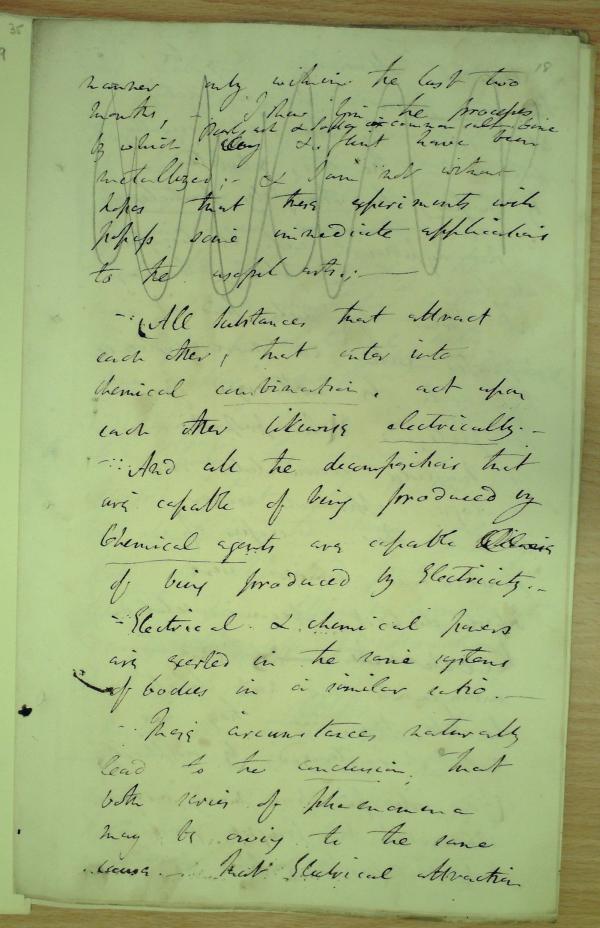 35
18
9
manner only within the last two
months, – I shew you the processes
Pearl ash & Soda in common salt, lime
by which clay & flint have been
metallized:- & I am not without
hopes that these experiments will
possess some immediate applications
to the useful arts;—
–:All substances that attract
each other, that enter into
chemical combination, act upon
each other likewise electrically.–
–:And all the decompositions that
are capable of being produced by
Chemical agents are capable
of being produced by Electricity.–
–:Electrical & chemical powers
are exerted in the same systems
of bodies in a similar ratio.—
– These circumstances naturally
lead to the conclusion, that
both series of phaenomena
may be owing to the same
cause.– that Electrical attraction